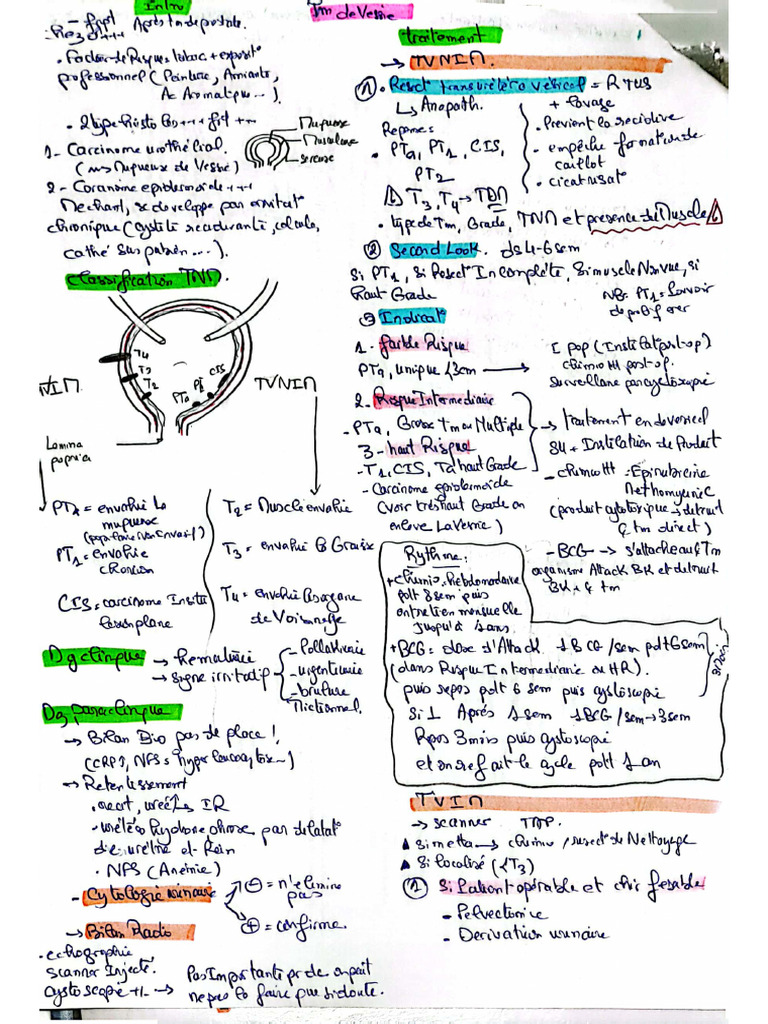 Intro
- freqt Après tm de prostate.
• Facteur de Risque, tabac + exposit°
professionnel (Peinture, Amiante,
Ac Aromatique...)
• 2 type histo
Muqueuse
Musculeuse
sereuse
1- Carcinome urothélial.
(Muqueuse de Vessie)
2- Carcinome epidermoide +++
Mechant, se developpe par irritat°
chronique (cystite recidivante, calculs,
cathé sus pubien...).
Classification TNM.
T4
T3
T2
CIS
PT1
PTa
TVNIM
Lamina
propria
PTa = envahie la
muqueuse
PT1 = envahie
chorion
CIS = carcinome Insitu
plane
T2 = Muscle envahie
T3 = envahie la Graisse
T4 = envahie organe
de Voisinage
Dg clinique → Hematurie
→ signe irritatif
- Pollakiurie
- urgenturie
- brulure
Mictionnel.
Dg paraclinique
→ Bilan Bio pas de place !
(CRP↑, NFS = hyperleucocytose~)
→ Retentissement
• creat, urée↑ IR
• urétéro hydronephrose par dilatat°
de urétre et Rein
• NFS (Anémie)
- Cytologie urinaire
⊖ = n'elimine
pas
⊕ = confirme.
→ Bilan Radio
• echographie
scanner Injecté.
cystoscopie +/- → Pas Importante
ne pas la faire que si doute.
Tm de Vessie
traitement
→ TVNIM.
① • Resect° transurétéro vésical = RTUV
↳ Anapath.
+ lavage
Reponse :
• Previent la recidive
• PTa, PT1, CIS,
PT2
- empêche formation de
caillot
• cicatrisat°
T3, T4 → TDM
• type de Tm, Grade, TNM et presence de Muscle
② Second Look. ds 4-6 sem
Si PT1, Si Resect° Incomplète, Si muscle Non vue, si
haut Grade
NB: PT1 = pouvoir
de perforer
③ Indicat°
1- faible Risque
PTa, unique <3cm → I pop (Instillat° post-op)
chimio post-op.
surveillance par cystoscopie
2. Risque Intermediaire
- PTa, Grosse tm ou Multiple
3- haut Risque
- T1, CIS, Ta haut Grade
- Carcinome epidermoide
(voir très haut Grade on
enleve La Vessie)
→ traitement endovesical
+ Instillation de Produit
- chimio = Epirubicine
Mitomycine C
(produit cytotoxique → detruit
tm direct)
- BCG → s'attache au Tm
organisme Attack BK et detruit
BK + tm
Rythme :
+ chimio, hebdomadaire
pdt 8 sem puis
entretien mensuelle
jusqu'à 1 ans.
+ BCG = dose d'Attack 1 BCG / sem pdt 6 sem
(dans Risque Intermediaire ou HR).
puis repos pdt 6 sem puis cystoscopie
1 BCG / sem → 3 sem
Repos 3 mois puis cystoscopie
et on refait le cycle pdt 1 an
TVIM
→ scanner TAP.
▲ Si meta → chimio / resect° de Nettoyage
▲ Si localisé (<T3)
① Si Patient opérable et chir fesable
- Pelvectomie
- Derivation urinaire